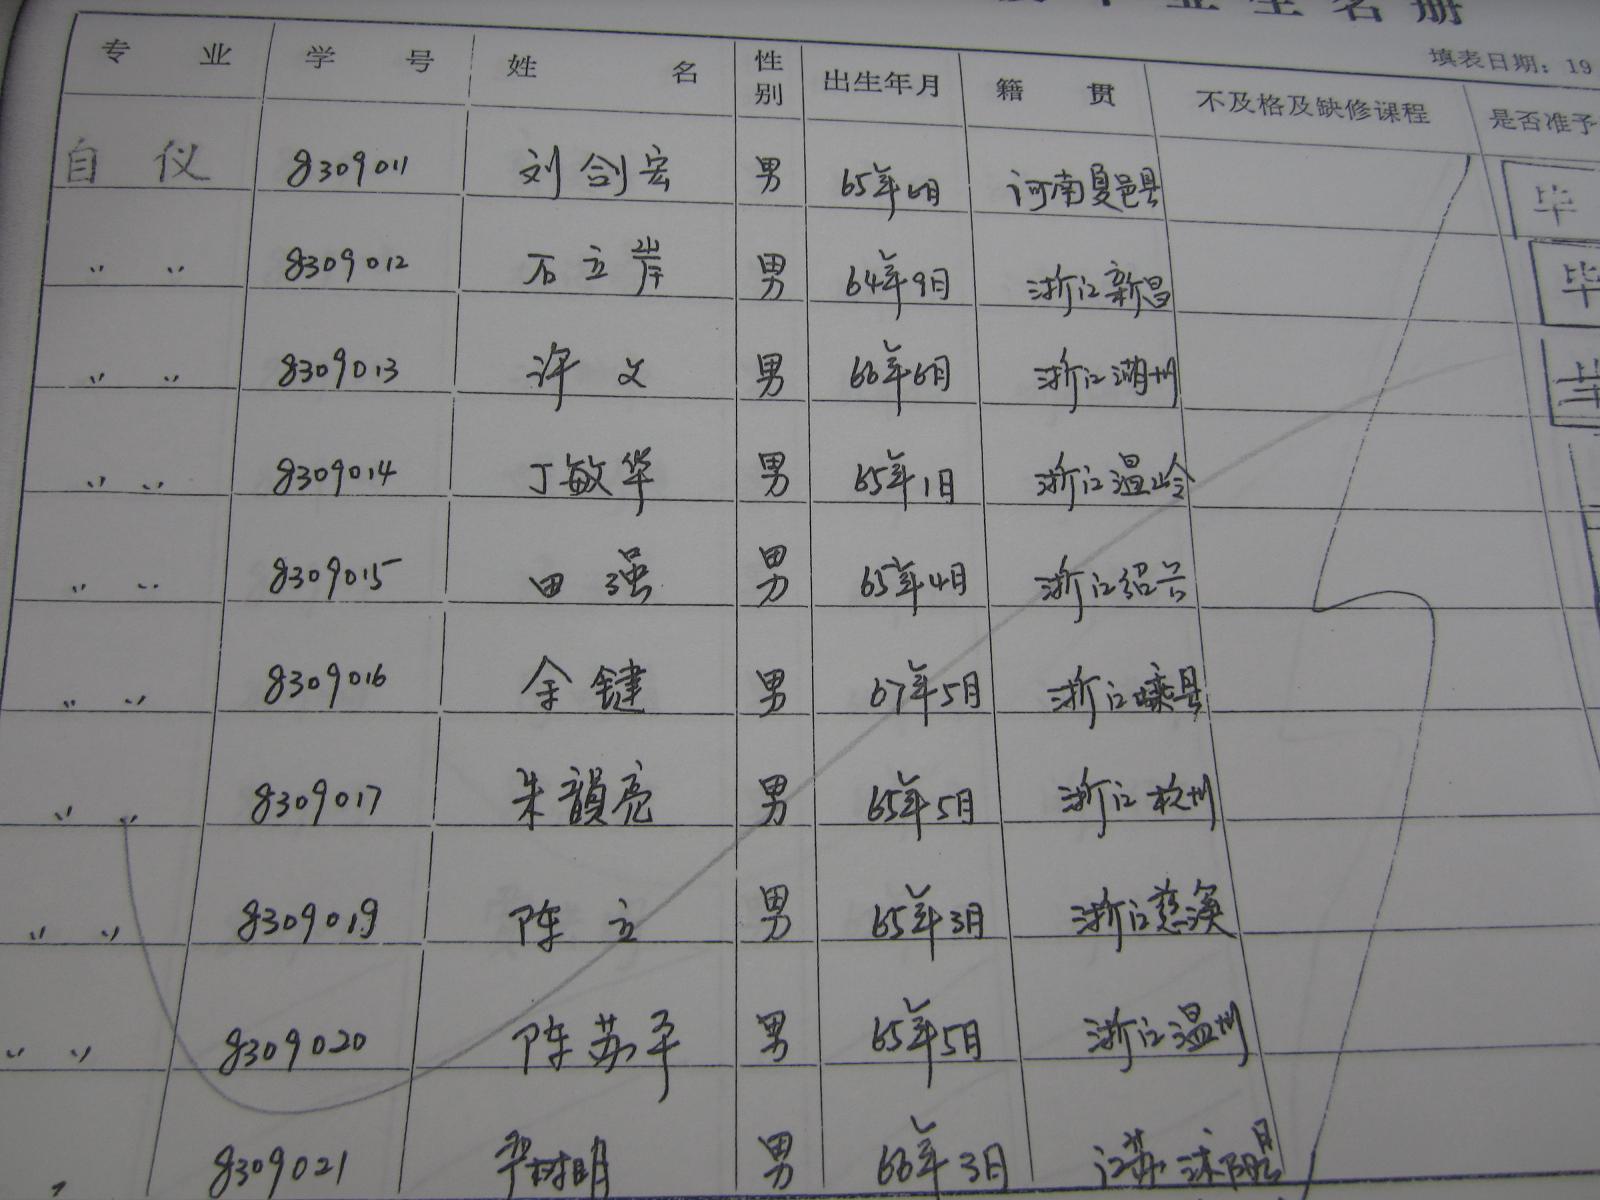 毕业生名册
填表日期：19
专 业 学 号 姓 名 性别 出生年月 籍 贯 不及格及缺修课程 是否准予
自 仪 8309011 刘剑宏 男 65年6月 河南夏邑县 毕
〃 〃 8309012 石立岸 男 64年9月 浙江新昌 毕
〃 〃 8309013 许文 男 66年6月 浙江湖州 毕
〃 〃 8309014 丁敏华 男 65年1月 浙江温岭
〃 〃 8309015 田强 男 65年4月 浙江绍兴
〃 〃 8309016 余键 男 67年5月 浙江嵊县
〃 〃 8309017 朱韻亮 男 65年5月 浙江杭州
〃 〃 8309019 陈立 男 65年3月 浙江慈溪
〃 〃 8309020 陈苏平 男 65年5月 浙江温州
〃 8309021 树明 男 66年3月 江苏沭阳县